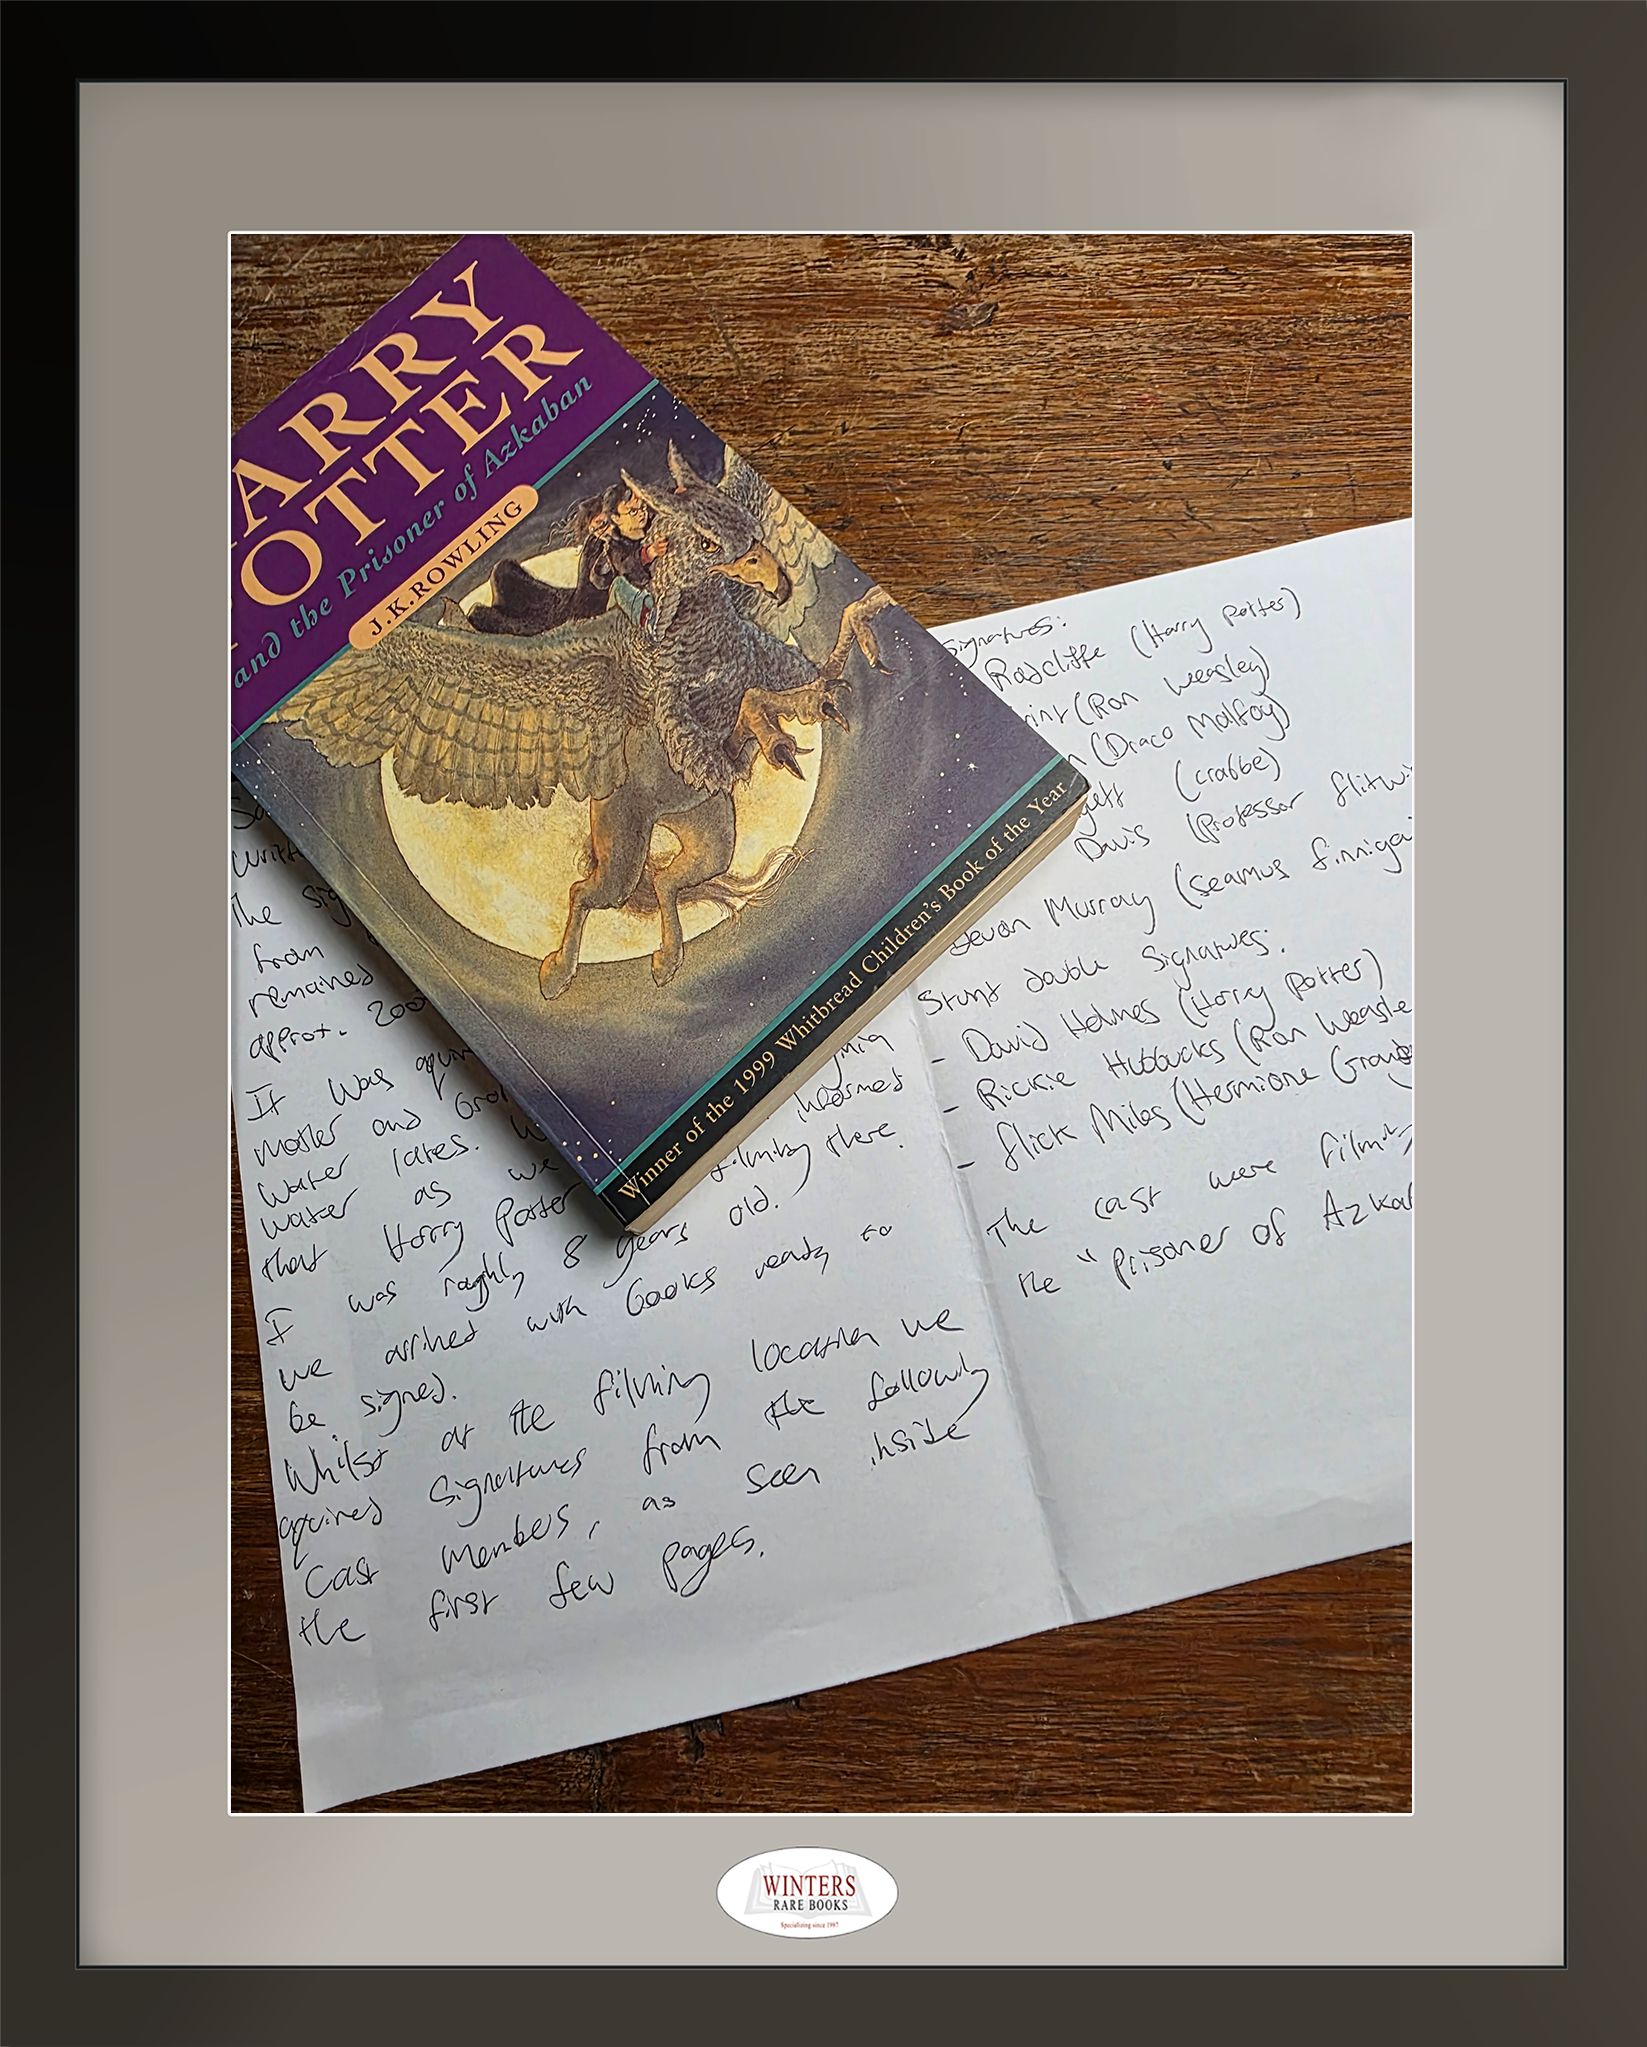 ARRY
OTTER
and the Prisoner of Azkaban
J.K.ROWLING
Winner of the 1999 Whitbread Children's Book of the Year
the sig
from
remained
approx. 200
It was aquir
mother and Gra
water lakes. W
water as we informed
that Harry Potter filming there.
I was roughly 8 years old.
we arrived with books ready to
be signed.
Whilst at the filming location we
aquired signatures from the following
Cast Members, as seen inside
the first few pages.
Signatures:
Radcliffe (Harry Potter)
rint (Ron Weasley)
n (Draco Malfoy)
yett (crabbe)
Davis (Professor flitwi
Devon Murray (Seamus finniga
Stunt double Signatures:
- David Holmes (Harry Potter)
- Rickie Hubbucks (Ron Weasle
- flick Miles (Hermione Grang
The cast were filming
the "Prisoner of Azka
WINTERS
RARE BOOKS
Specializing since 1987